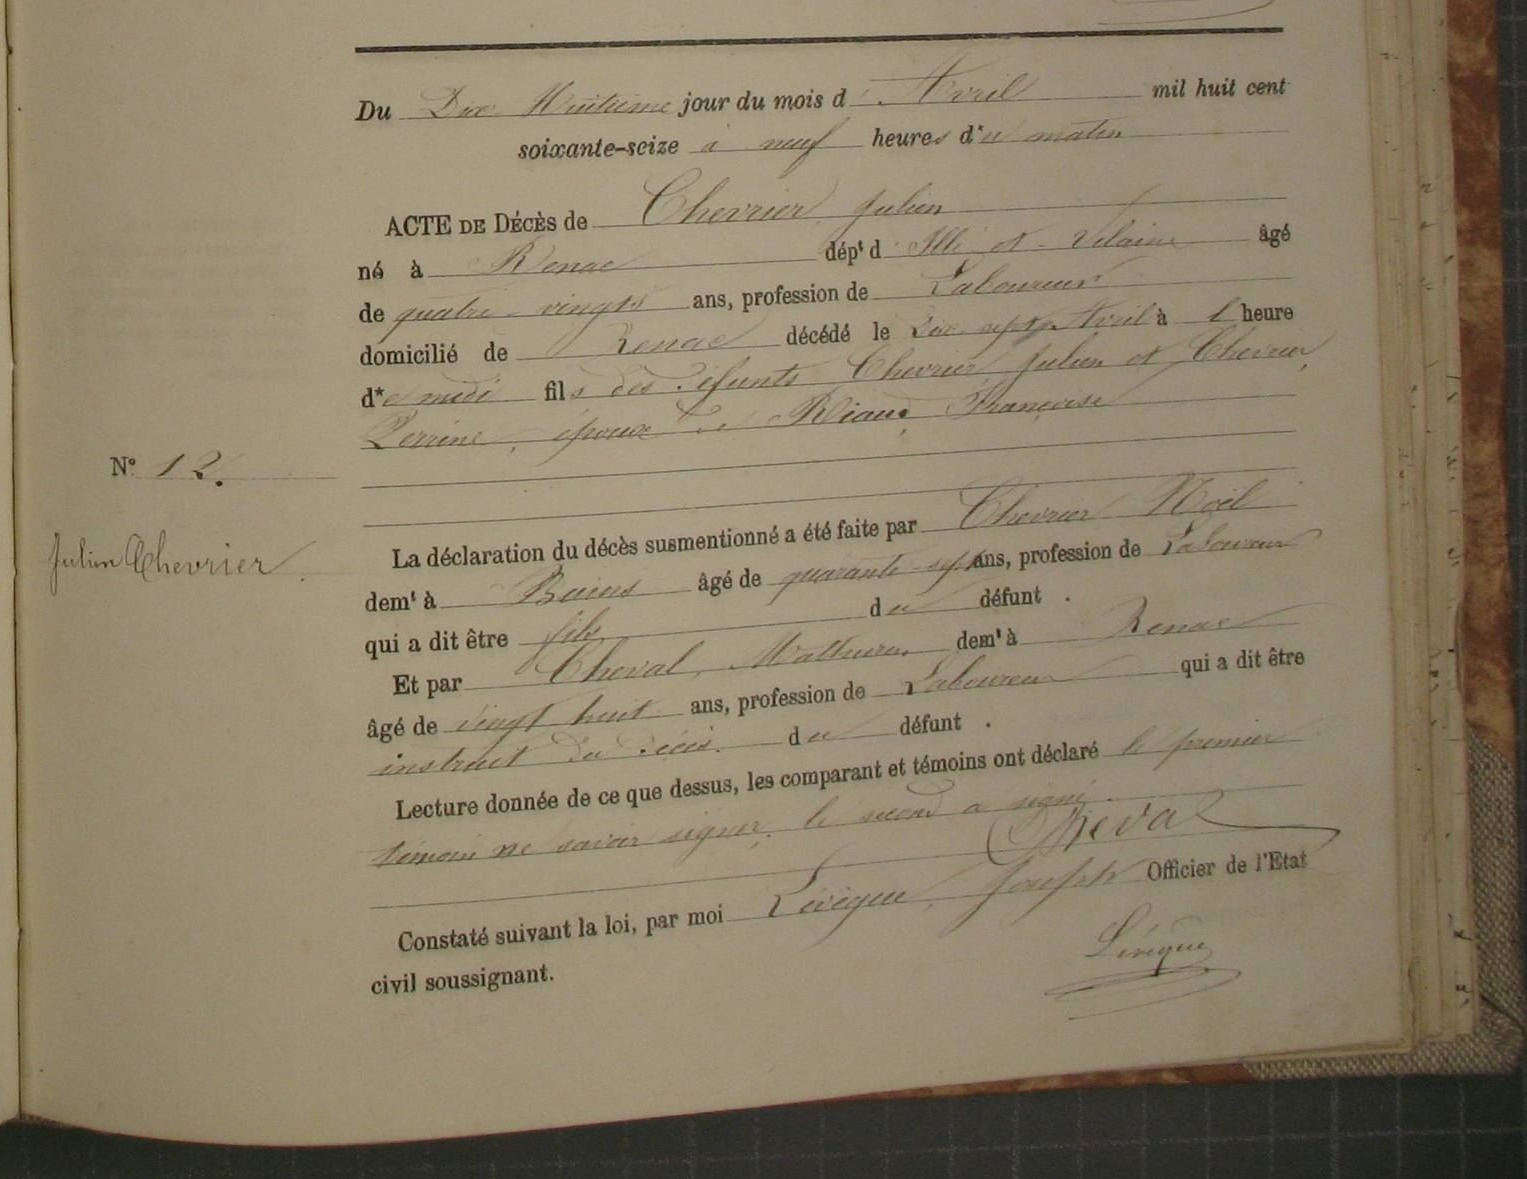 Du Dix Huitième jour du mois d' Avril mil huit cent
soixante-seize à neuf heures d*u matin
ACTE DE DÉCÈS de Chevrier Julien
né à Renac dépt d Ille et Vilaine âgé
de quatre vingts ans, profession de Laboureur
domicilié de Renac décédé le Dix sept Avril à 1 heure
d*e midi fils des défunts Chevrier Julien et Chevrier
Perrine, époux de Riaud Françoise
N° 12.
Julien Chevrier.
La déclaration du décès susmentionné a été faite par Chevrier Noël
demt à Bains âgé de quarante sept ans, profession de Laboureur
qui a dit être fils du défunt .
Et par Cheval Mathurin demt à Renac
âgé de vingt huit ans, profession de Laboureur qui a dit être
instruit du décès. du défunt .
Lecture donnée de ce que dessus, les comparant et témoins ont déclaré le premier
témoin ne savoir signer, le second a signé.
Cheval
Constaté suivant la loi, par moi Lévêque, Joseph Officier de l'Etat
civil soussignant.
Lévêque